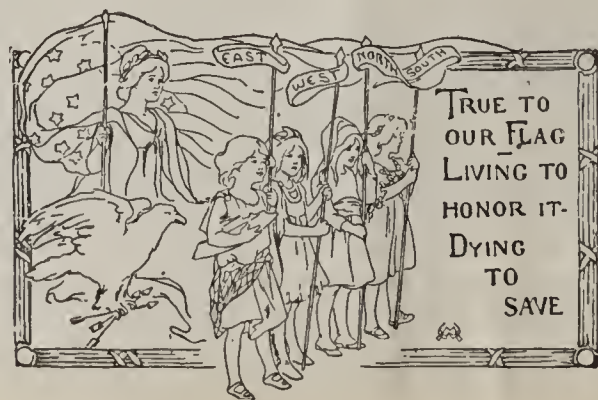 EAST
WEST
NORTH
SOUTH
TRUE TO
OUR FLAG
LIVING TO
HONOR IT-
DYING
TO
SAVE